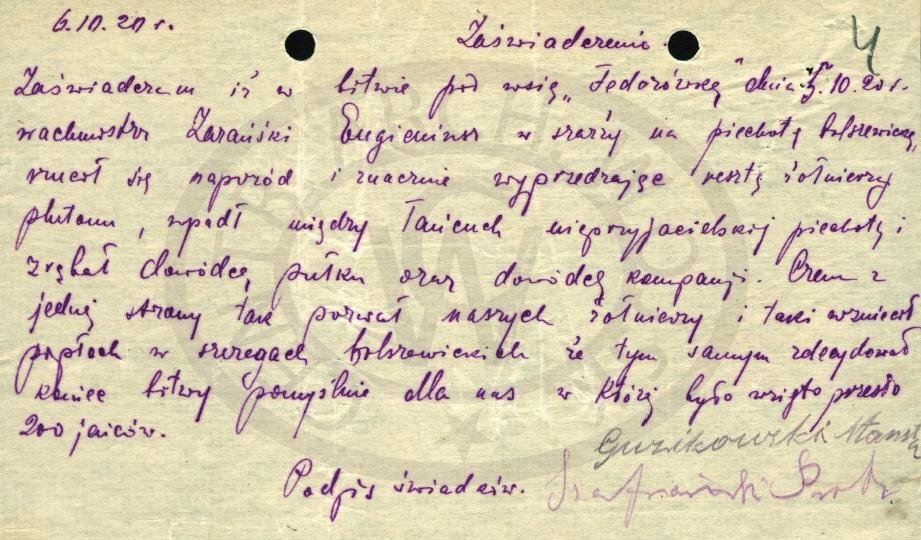 6.10.20 r.
Zaświadczenie.
4
Zaświadczam iż w bitwie pod wsią „Fedorówką" dnia 3.10.20 r.
wachmistrz Zarański Eugieniusz w szarży na piechotę bolszewicką,
rzucił się naprzód i znacznie wyprzedzając resztę żołnierzy
plutonu, wpadł między łańcuch nieprzyjacielskiej piechoty i
zrąbał dowódcę pułku oraz dowódcę kompanji. Czem z
jednej strony tak porwał naszych żołnierzy i taki wzniecił
popłoch w szeregach bolszewickich że tym samym zdecydował
koniec bitwy pomyślnie dla nas w której było wzięto przeszło
200 jeńców.
Guzikowski
Podpis świadków.